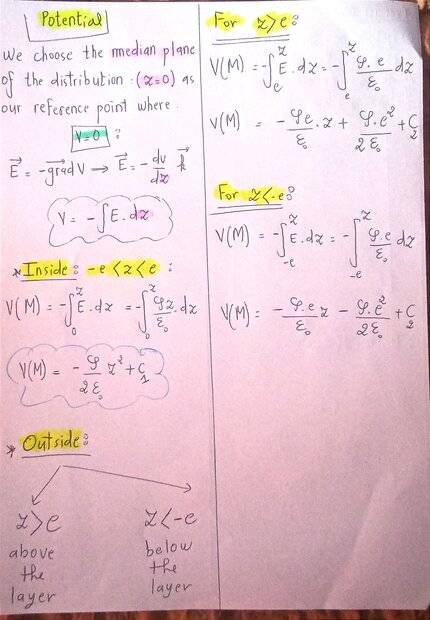 Potential
We choose the median plane
of the distribution (z=0) as
our reference point where
V=0 :
E⃗ = -grad⃗ V → E⃗ = - dv/dz k⃗
V = -∫E.dz
* Inside: -e < z < e :
V(M) = -∫₀ᶻ E.dz = -∫₀ᶻ ρz/ε₀ . dz
V(M) = - ρ/2ε₀ z² + C₁
* Outside:
z>e z<-e
above below
the the
layer layer
For z>e:
V(M) = -∫ₑᶻ E.dz = -∫ₑᶻ ρ.e/ε₀ dz
V(M) = - ρe/ε₀ . z + ρ.e²/2ε₀ + C₂
For z<-e:
V(M) = -∫₋ₑᶻ E.dz = -∫₋ₑᶻ ρ.e/ε₀ dz
V(M) = - ρ.e/ε₀ z - ρ.e²/2ε₀ + C₂